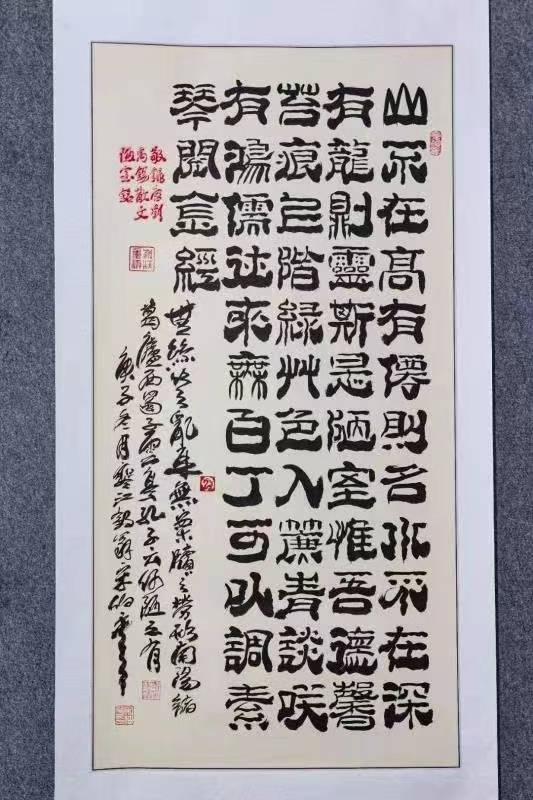 山不在高有僊則名水不在深
有龍則靈斯是陋室惟吾德馨
苔痕上階緑艸色入簾青談咲
有鴻儒往來無白丁可以調素
琴閱金經
無絲竹之亂耳無案牘之勞形南陽諸
葛廬西蜀子雲亭孔子云何陋之有
庚子冬月寒江釣翁宋伯
敬錄唐劉
禹錫散文
陋室銘